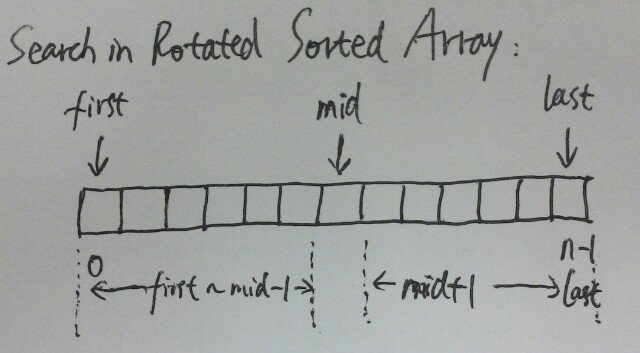 Search in Rotated Sorted Array:
first mid last
0 n-1
first ~ mid-1 mid+1 last